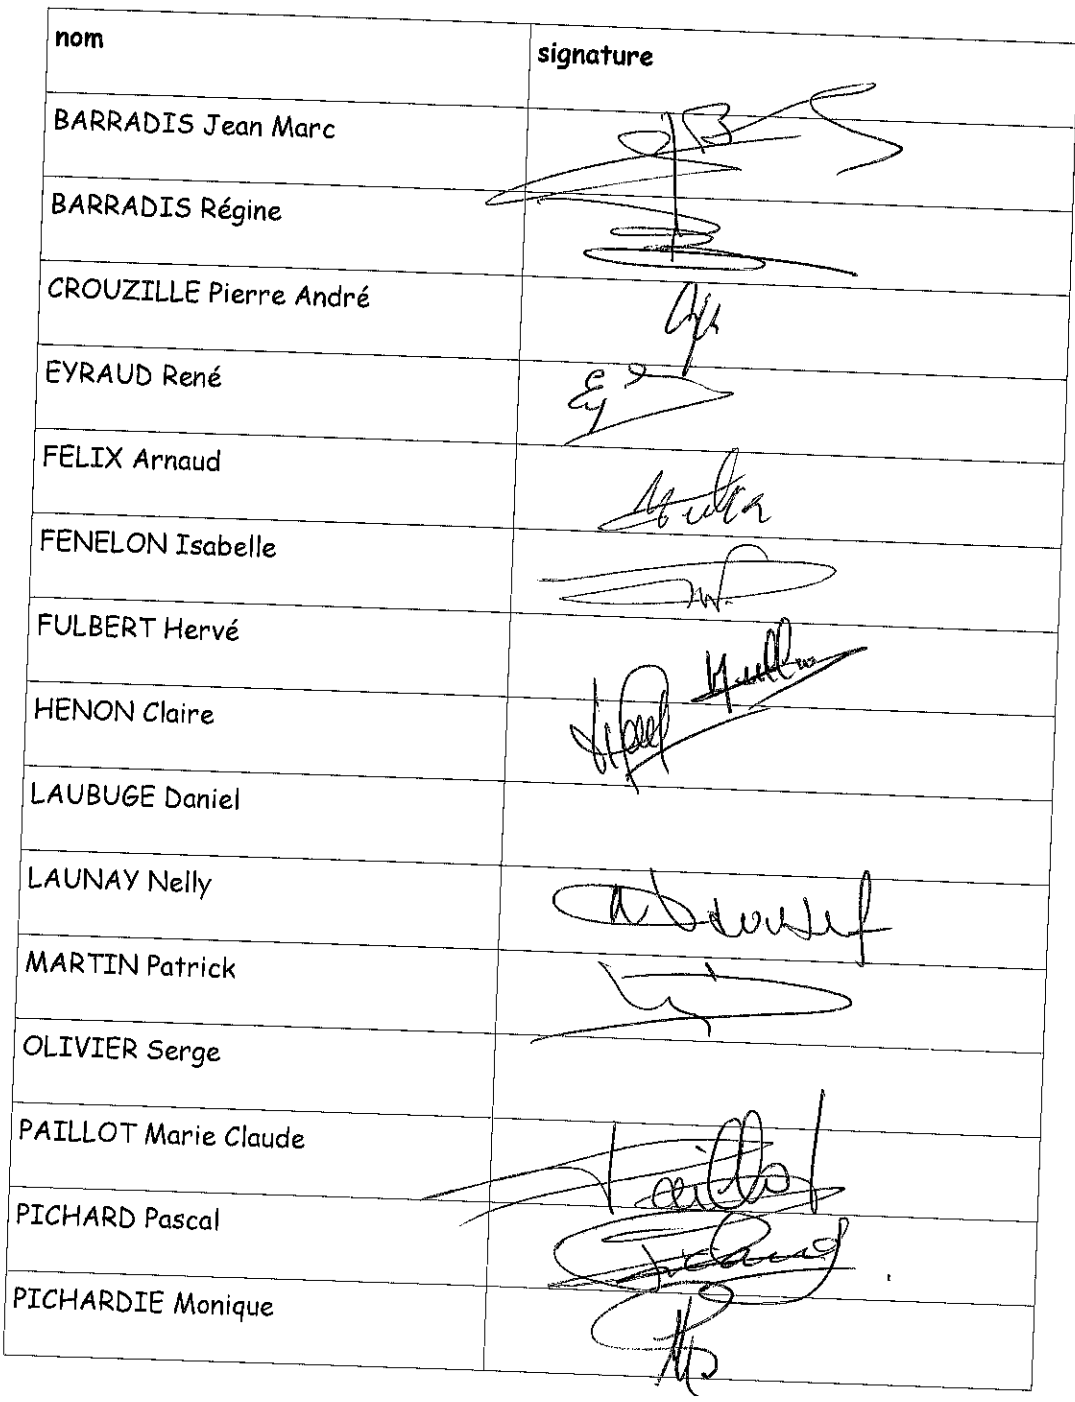 nom signature
BARRADIS Jean Marc
BARRADIS Régine
CROUZILLE Pierre André
EYRAUD René
FELIX Arnaud
FENELON Isabelle
FULBERT Hervé
HENON Claire
LAUBUGE Daniel
LAUNAY Nelly
MARTIN Patrick
OLIVIER Serge
PAILLOT Marie Claude Paillot
PICHARD Pascal Pichard
PICHARDIE Monique